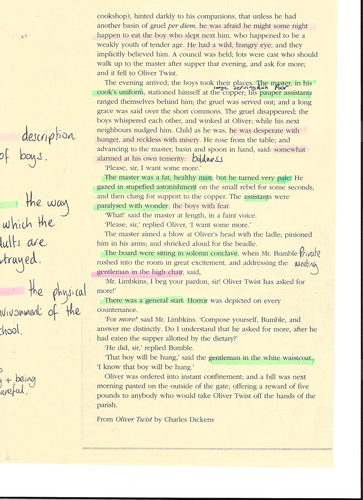 cookshop), hinted darkly to his companions, that unless he had
another basin of gruel per diem, he was afraid he might some night
happen to eat the boy who slept next him, who happened to be a
weakly youth of tender age. He had a wild, hungry eye; and they
implicitly believed him. A council was held; lots were cast who should
walk up to the master after supper that evening, and ask for more;
and it fell to Oliver Twist.
The evening arrived; the boys took their places. The master, in his
cook's uniform, stationed himself at the copper; his pauper assistants
ranged themselves behind him; the gruel was served out; and a long
grace was said over the short commons. The gruel disappeared; the
boys whispered each other, and winked at Oliver; while his next
neighbours nudged him. Child as he was, he was desperate with
hunger, and reckless with misery. He rose from the table; and
advancing to the master, basin and spoon in hand, said: somewhat
alarmed at his own temerity: boldness
'Please, sir, I want some more.'
The master was a fat, healthy man; but he turned very pale. He
gazed in stupefied astonishment on the small rebel for some seconds,
and then clung for support to the copper. The assistants were
paralysed with wonder; the boys with fear.
'What!' said the master at length, in a faint voice.
'Please, sir,' replied Oliver, 'I want some more.'
The master aimed a blow at Oliver's head with the ladle; pinioned
him in his arms; and shrieked aloud for the beadle.
The board were sitting in solemn conclave, when Mr. Bumble Private
rushed into the room in great excitement, and addressing the meeting
gentleman in the high chair, said,
'Mr. Limbkins. I beg your pardon, sir! Oliver Twist has asked for
more!'
There was a general start. Horror was depicted on every
countenance.
'For more!' said Mr. Limbkins. 'Compose yourself, Bumble, and
answer me distinctly. Do I understand that he asked for more, after he
had eaten the supper allotted by the dietary?'
'He did, sir,' replied Bumble.
'That boy will be hung,' said the gentleman in the white waistcoat.
'I know that boy will be hung.'
Oliver was ordered into instant confinement; and a bill was next
morning pasted on the outside of the gate, offering a reward of five
pounds to anybody who would take Oliver Twist off the hands of the
parish.
From Oliver Twist by Charles Dickens
description
of boys.
the way
which the
the physical
of the
+ being